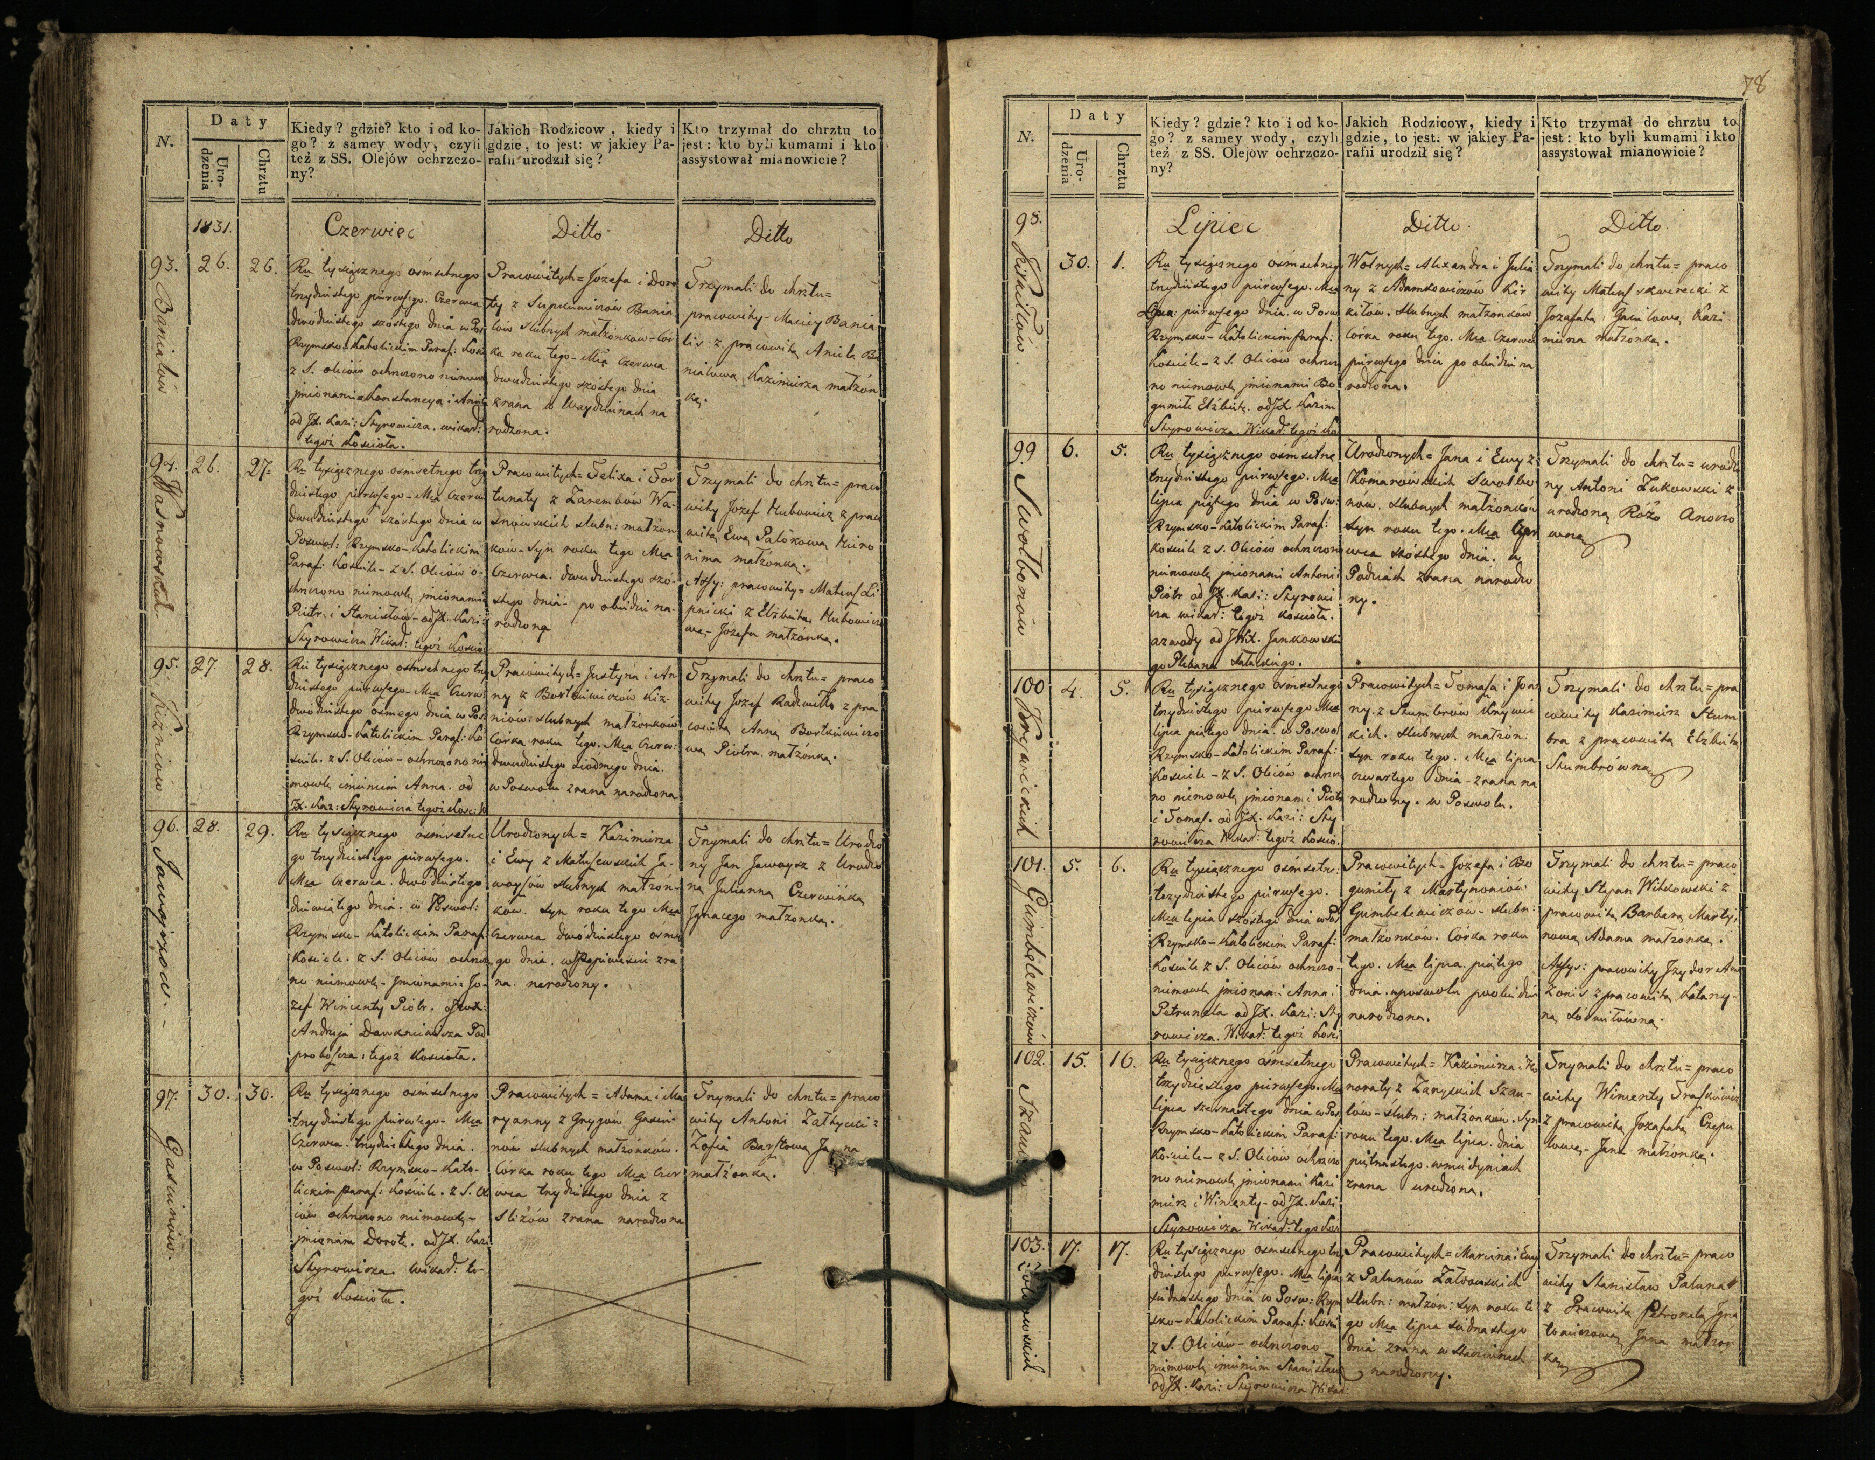 N.
Daty
Uro-
dzenia
Chrztu
Kiedy? gdzie? kto i od ko-
go? z samey wody, czyli
też z SS. Olejów ochrzczo-
ny?
Jakich Rodzicow, kiedy i
gdzie, to jest: w jakiey Pa-
rafii urodził się?
Kto trzymał do chrztu to
jest: kto byli kumami i kto
assystował mianowicie?
1831.
Czerwiec
Ditto
Ditto
93.
26.
26.
Ru tysiącznego ośmsetnego
trzydziestego pierwszego. Czerwca
dwódziestego szostego dnia w Pos
Rzymsko-Katolickim Paraf: Kość
z S. oleiów ochrzczono niemowle
jmionami Konstancya i Aniela
od JX. Kazi: Skyrowicza. wikar:
tegoż Kościoła.
Pracowitych= Józefa i Doro
ty z
low slubnych małżonkow-cor
ka roku tego- Mca Czerwca
dwudziestego szostego dnia
zrana w na
rodzona.
Trzymali do chrztu=
pracowity- Maciey Bania
lis z pracowitą Anielą Ba
nialową Kazimierza małżon
ką.
94. Wasnowskich
26.
27.
Ru tysiącznego ośmsetnego trzy
dziestego pierwszego- Mca Czerw
dwudziestego szóstego dnia w
Poswol: Rzymsko-Katolickim
Paraf: Kościele- z S. Oleiów o-
chrzczono niemowle jmionami
Piotr i Stanisław- od JX. Kazi:
Skyrowicza Wikar: tegoż Kościo
Pracowitych= Felixa i For
tunaty z Zarembów Wa-
snowskich slubn: małżon
ków- syn roku tego Mca
Czerwca. dwudziestego szó-
stego dnia- po obiedzie na-
rodzony
Trzymali do chrztu= praco
wity Józef Hubowicz z praco
witą Ewą Palokową Hiero
nima małżonką.
Assy: pracowity- Mateusz Li
pnicki z Elzbietą Hubowiczo
wą- Józefa małżonką.
95.
27
28.
Ru tysiącznego ośmsetnego try
dziestego pierwszego- Mca Czerw:
dwódziestego osmego dnia w Pos
Rzymsko-Katolickim Paraf: Ko
ściele. z S. Oleiów- ochrzczono nie
mowle imieniem Anna. od
JX. Kaz: Skyrowicza tegoż Kościoł
Pracowitych= Justyna i An
ny z Bortkiewiczów Kiz-
niów: slubnych małżonków
Córka roku tego. Mca Czerw:
dwudziestego siodmego dnia.
w Poswolu zrana narodzona
Trzymali do chrztu= praco
wity Jozef Radziwiłło z pra
cowitą Anną Bortkiewiczo
wą Piotra małżonką.
96. Jawoyszow-
28.
29.
Ru tysiącznego ośmsetne
go trzydziestego pierwszego.
Mca Czerwca. dwódziestego
dziewiątego dnia. w Poswol:
Rzymsko-Katolickim Paraf:
Kościele. z S. Oleiów ochrzczo
no niemowle- Jmionami= Jo-
zef Wincenty Piotr. przez:
Andrzeja Pod
proboszcza: tegoż Kościoła.
Urodzonych= Kazimierza
i Ewy z Matuszewskich Ja-
woyszów slubnych małżon-
kow. syn roku tego Mca
Czerwca dwódziestego osme
go dnia. w zra
na. narodzony.
Trzymali do chrztu= Urodzo
ny Jan Jawoysz z Urodzo
ną Julianną Czerwińską
Ignacego małżonką.
97. Gasiunów.
30.
30.
Ru tysiącznego ośmsetnego
trzydziestego pierwszego- Mca
Czerwca. trzydziestego dnia.
w Poswol: Rzymsko-Kato-
lickim Paraf: Kościele. z S. Ol
iów ochrzczono niemowle-
jmieniem Dorota. od JX. Kazi
Skyrowicza wikar: te-
goż Kościoła.
Pracowitych= Adama i Ma
ryanny z Grygów Gasiu-
nów slubnych małżonków.
Corka roku tego Mca Czer
wca trzydziestego dnia z
Sliżów zrana narodzona
Trzymali do chrztu= praco
wity Antoni z
Zofią Jana
małżonką.
78
N.
Daty
Uro-
dzenia
Chrztu
Kiedy? gdzie? kto i od ko-
go? z samey wody, czyli
też z SS. Olejow ochrzczo-
ny?
Jakich Rodzicow, kiedy i
gdzie, to jest: w jakiey Pa-
rafii urodził się?
Kto trzymał do chrztu to
jest: kto byli kumami i kto
assystował mianowicie?
Lipiec
Ditto
Ditto
98. Kirkiłłów.
30.
1.
Ru tysiącznego ośmsetneg
trzydziestego pierwszego. Mca
Lipca pierwszego dnia. w Posw
Rzymsko-Katolickim Paraf:
Kościele- z S. Oleiów ochrzczo
no niemowle jmionami Bo
gumiła Elżbieta. od JX. Kazim
Skyrowicza. Wikar: tegoż Ko
Wolnych= Alexandra i Julia
ny z Adamkowiczów Kir
kiłów. slubnych małżonkow
Córka roku tego. Mca Czerwca
pierwszego dnia po obiedzie na
rodzona.
Trzymali do chrztu= praco
wity Mateusz Skworecki z
Jozafatą Kazi
mierza małżonką.
99. Swolbonów
6.
5.
Ru tysiącznego ośmsetne
trzydziestego pierwszego. Mca
lipca piątego dnia w Posw:
Rzymsko-Katolickim Paraf:
kościele z S. Oleiów ochrzczono
niemowle jmionami Antoni
Piotr od JX. Kazi: Skyrowi
cza wikar: tegoż kościoła.
a z wody od JWX. Jankowskie
go Plebana
Urodzonych= Jana i Ewy z
Komarowskich Swolbo
nów. slubnych małżonków
syn roku tego. Mca Czer
wca szóstego dnia. w
zrana narodzo
ny.
Trzymali do chrztu= urodzo
ny Antoni Żukowski z
urodzoną Rożą
100 Krzywickich
4.
5.
Ru tysiącznego ośmsetnego
trzydziestego pierwszego Mca
lipca piątego dnia. w Poswo
Rzymsko-Katolickim Paraf:
Kościele- z S. Oleiów ochrzcz
no niemowle jmionami Piotr
i Tomasz. od JX. Kazi: Sky
rowicza Wikar: tegoż Kościo.
Pracowitych= Tomasza i Joan
ny. z Skumbrów Krzywic
kich. slubnych małżon:
syn roku tego. Mca lipca
czwartego dnia- zrana na
rodzony. w Poswolu.
Trzymali do chrztu= pra
cowity Kazimierz Skum
bra z pracowitą Elżbietą
Skumbrówną
101. Gumbelewiczów
5.
6.
Ru tysiącznego ośmsetn:
trzydziestego pierwszego.
Mca lipca szostego dnia w Pos
Rzymsko-Katolickim Paraf:
Kościele z S. Oleiów ochrzczo-
niemowle jmionami Anna i
Petrunela od JX. Kazi: Sky
rowicza. Wikar: tegoż Kości
Pracowitych= Jozefa i Bo
gumiły z Martynoniów
Gumbelewiczow- slubn:
małżonków. Córka roku
tego. Mca lipca piątego
dnia. w poswolu po obiedzie
narodzona.
Trzymali do chrztu= praco
wity Stepan Witkowski z
pracowitą Barbarą Marty-
nową Adama małżonką.
Assys: pracowity Jzydor
z pracowitą Katarzy-
ną
102.
15.
16.
Ru tysiącznego ośmsetnego
trzydziestego pierwszego. Mca
lipca szesnastego dnia w Pos
Rzymsko-Katolickim Paraf:
Kościele- z S. Oleiów ochrzczo
no niemowle jmionami Kazi
mierz i Wincenty- od JX. Kazi
Skyrowicza Wikar: tego Koś
Pracowitych= Kazimierza i Ho
noraty z Szau-
lów- slubn: małżonków. Syn
roku tego. Mca lipca. dnia
piętnastego.
zrana urodzona.
Trzymali do chrztu= praco
wity Wincenty
z pracowitą Jozafatą Czepu
łową- Jana małżonką.
103. Zatkowskich
17.
17.
Ru tysiącznego ośmsetnego try
dziestego pierwszego. Mca lipca
siedmastego dnia w Posw: Rzym
sko-Katolickim Paraf: Kości
z S. Oleiów- ochrzczono
niemowle imieniem Stanisław
od JX. Kazi: Skyrowicza Wikar
Pracowitych= Marcina i Ewy
z Palunów Zatkowskich
slubn: małżon: syn roku te
go Mca lipca siedmastego
dnia zrana w
narodzony.
Trzymali do chrztu= praco
wity Stanisław Paluna
z Pracowitą Petronelą
Jana małżon
ką